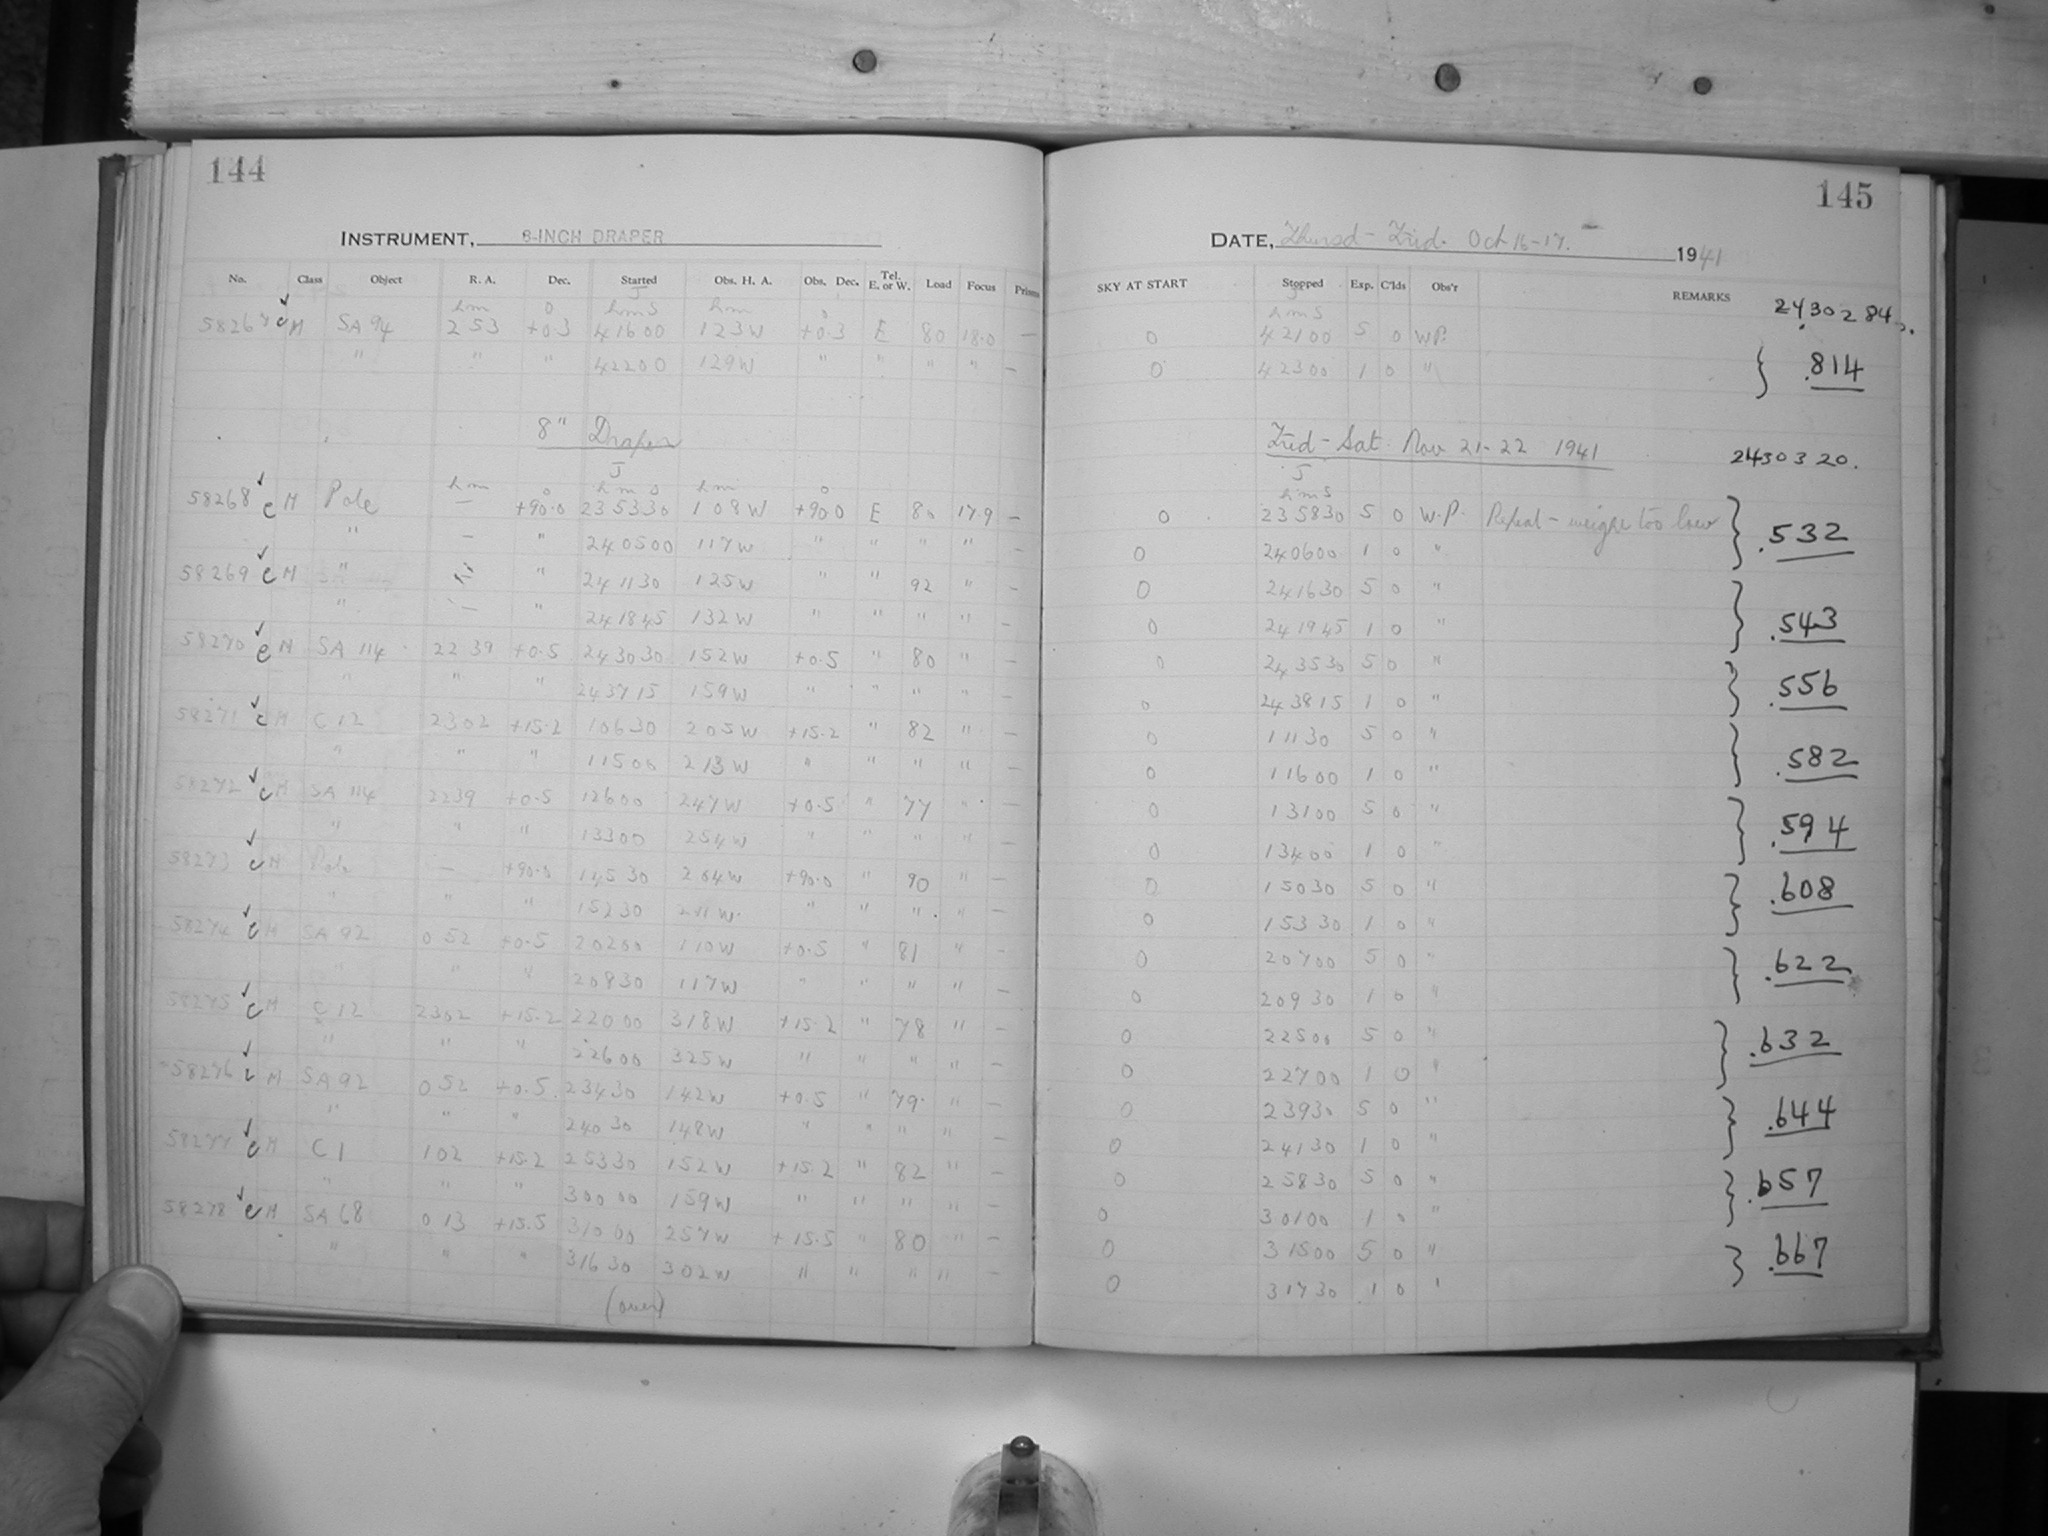 144
145
INSTRUMENT, 8-INCH DRAPER
DATE, Thursd - Frid. Oct 16-17. 1941
No. Class Object R. A. Dec. Started Obs. H. A. Obs. Dec. Tel. E. or W. Load Focus Prisms SKY AT START Stopped Exp. C'lds Obs'r REMARKS
J
h m o h m s h m o h m s 2430284.
58267 c M SA 94 2 53 +0.3 4 16 00 1 23 W +0.3 E 80 18.0 — 0 4 21 00 5 0 W.P.
" " " 4 22 00 1 29 W " " " " — 0 4 23 00 1 0 " .814
8" Draper Frid - Sat. Nov 21-22 1941 2430320.
J J
h m o h m s h m o h m s
58268 c M Pole — +90.0 23 53 30 1 08 W +90.0 E 80 17.9 — 0 23 58 30 5 0 W.P. Repeat - weight too low .532
" — " 24 05 00 1 17 W " " " " — 0 24 06 00 1 0 "
58269 c M " " 24 11 30 1 25 W " " 92 " — 0 24 16 30 5 0 " .543
" — " 24 18 45 1 32 W " " " " — 0 24 19 45 1 0 "
58270 c M SA 114 22 39 +0.5 24 30 30 1 52 W +0.5 " 80 " — 0 24 35 30 5 0 " .556
" " " 24 37 15 1 59 W " " " " — 0 24 38 15 1 0 "
58271 c M C 12 23 02 +15.2 1 06 30 2 05 W +15.2 " 82 " — 0 1 11 30 5 0 " .582
" " " 1 15 00 2 13 W " " " " — 0 1 16 00 1 0 "
58272 c M SA 114 22 39 +0.5 1 26 00 2 47 W +0.5 " 77 " — 0 1 31 00 5 0 " .594
" " " 1 33 00 2 54 W " " " " — 0 1 34 00 1 0 "
58273 c M Pole — +90.0 1 45 30 2 04 W +90.0 " 90 " — 0 1 50 30 5 0 " .608
" " " 1 52 30 2 11 W " " " " — 0 1 53 30 1 0 "
58274 c M SA 92 0 52 +0.5 2 02 00 1 10 W +0.5 " 81 " — 0 2 07 00 5 0 " .622
" " " 2 08 30 1 17 W " " " " — 0 2 09 30 1 0 "
58275 c M C 12 23 02 +15.2 2 20 00 3 18 W +15.2 " 78 " — 0 2 25 00 5 0 " .632
" " " 2 26 00 3 25 W " " " " — 0 2 27 00 1 0 "
58276 c M SA 92 0 52 +0.5 2 34 30 1 42 W +0.5 " 79 " — 0 2 39 30 5 0 " .644
" " " 2 40 30 1 48 W " " " " — 0 2 41 30 1 0 "
58277 c M C 1 1 02 +15.2 2 53 30 1 52 W +15.2 " 82 " — 0 2 58 30 5 0 " .657
" " " 3 00 00 1 59 W " " " " — 0 3 01 00 1 0 "
58278 c M SA 68 0 13 +15.5 3 10 00 2 57 W +15.5 " 80 " — 0 3 15 00 5 0 " .667
" " " 3 16 30 3 02 W " " " " — 0 3 17 30 1 0 "
(over)